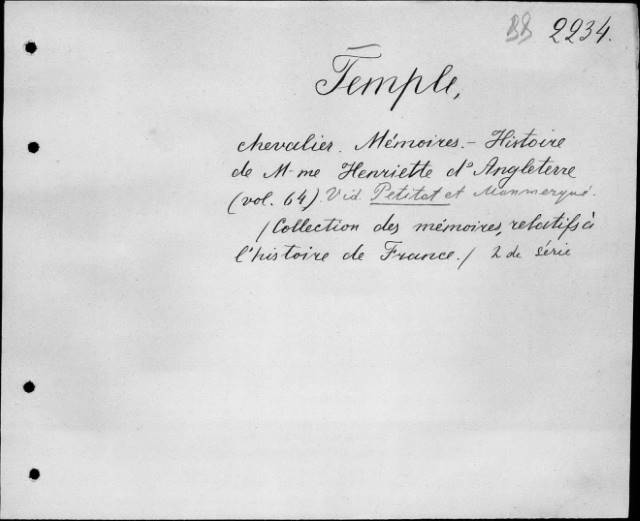 BB 2234.
Temple,
chevalier. Mémoires. – Histoire
de M-me Henriette d'Angleterre
(vol. 64). Vid. Petitot et Monmerqué.
/Collection des mémoires, relatifs à
l'histoire de France./ 2 de série